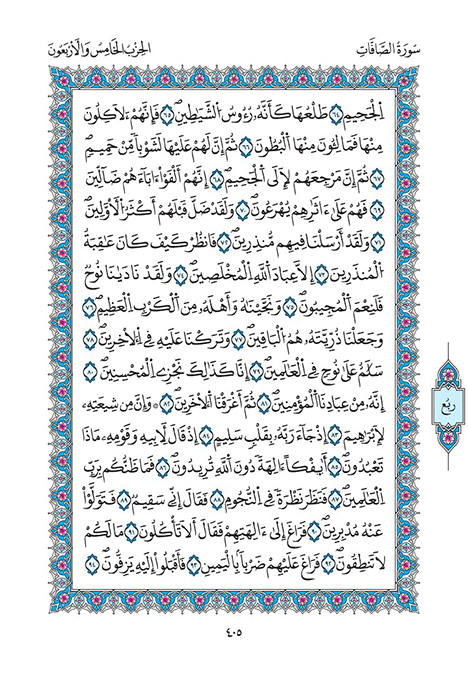 سُورَةُ الصَّافَّاتِ
الحِزْبُ الخَامِسُ وَالأَرْبَعُونَ
اِ۬لْجَحِيمِ ٦٤ طَلْعُهَا كَأَنَّهُۥ رُءُوسُ الشَّيَٰطِينِ ٦٥ فَإِنَّهُمْ ءَلَاكِلُونَ
مِنْهَا فَمَالِـُٔونَ مِنْهَا اَ۬لْبُطُونَ ٦٦ ثُمَّ إِنَّ لَهُمْ عَلَيْهَا لَشَوْباً مِّنْ حَمِيمٍ
٦٧ ثُمَّ إِنَّ مَرْجِعَهُمْ لَإِلَى اَ۬لْجَحِيمِ ٦٨ إِنَّهُمُۥٓ أَلْفَوَاْ ابَآءَهُمْ ضَآلِّينَ
٦٩ فَهُمْ عَلَىٰٓ ءَاثٰ۪رِهِمْ يُهْرَعُونَ ٧٠ وَلَقَد ضَّلَّ قَبْلَهُمُۥٓ أَكْثَرُ اُ۬لَاوَّلِينَ
٧١ وَلَقَدَ اَرْسَلْنَا فِيهِم مُّنذِرِينَ ٧٢ فَانظُرْ كَيْفَ كَانَ عَٰقِبَةُ
اُ۬لْمُنذَرِينَ ٧٣ إِلَّا عِبَادَ اَ۬للَّهِ اِ۬لْمُخْلَصِينَ ٧٤ وَلَقَدْ نَادَيٰنَا نُوحٌ
فَلَنِعْمَ اَ۬لْمُجِيبُونَ ٧٥ وَنَجَّيْنَٰهُ وَأَهْلَهُۥ مِنَ اَ۬لْكَرْبِ اِ۬لْعَظِيمِ ٧٦
وَجَعَلْنَا ذُرِّيَّتَهُۥ هُمُ اُ۬لْبَاقِينَ ٧٧ وَتَرَكْنَا عَلَيْهِ فِي اِ۬لَاخِرِينَ ٧٨
سَلَٰمٌ عَلَىٰ نُوحٍ فِي اِ۬لْعَٰلَمِينَ ٧٩ إِنَّا كَذَٰلِكَ نَجْزِي اِ۬لْمُحْسِنِينَ ٨٠
إِنَّهُۥ مِنْ عِبَادِنَا اَ۬لْمُؤْمِنِينَ ٨١ ثُمَّ أَغْرَقْنَا اَ۬لَاخَرِينَ ٨٢ وَإِنَّ مِن شِيعَتِهِۦ
لَإِبْرَٰهِيمَ ٨٣ إِذْ جَآءَ رَبَّهُۥ بِقَلْبٍ سَلِيمٍ ٨٤ اِذْ قَالَ لِأَبِيهِ وَقَوْمِهِۦ مَاذَا
تَعْبُدُونَ ٨٥ أَئِفْكاً ءَالِهَةً دُونَ اَ۬للَّهِ تُرِيدُونَ ٨٦ فَمَا ظَنُّكُم بِرَبِّ
اِ۬لْعَٰلَمِينَ ٨٧ فَنَظَرَ نَظْرَةً فِي اِ۬لنُّجُومِ ٨٨ فَقَالَ إِنِّي سَقِيمٌ ٨٩ فَتَوَلَّوْاْ
عَنْهُ مُدْبِرِينَ ٩٠ فَرَاغَ إِلَىٰٓ ءَالِهَتِهِمْ فَقَالَ أَلَا تَاكُلُونَ ٩١ مَا لَكُمْ
لَا تَنطِقُونَ ٩٢ فَرَاغَ عَلَيْهِمْ ضَرْباً بِالْيَمِينِ ٩٣ فَأَقْبَلُوٓاْ إِلَيْهِ يَزِفُّونَ ٩٤
ربع
٤٠٥